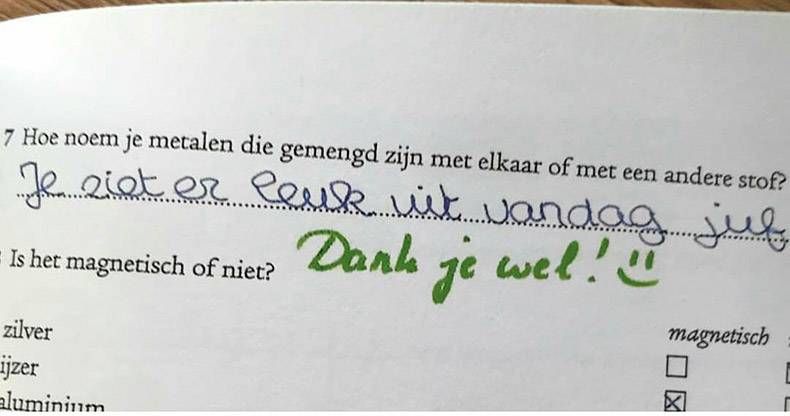 7 Hoe noem je metalen die gemengd zijn met elkaar of met een andere stof?
Je ziet er leuk uit vandag juf
Is het magnetisch of niet?
Dank je wel!
zilver
magnetisch
ijzer
aluminium